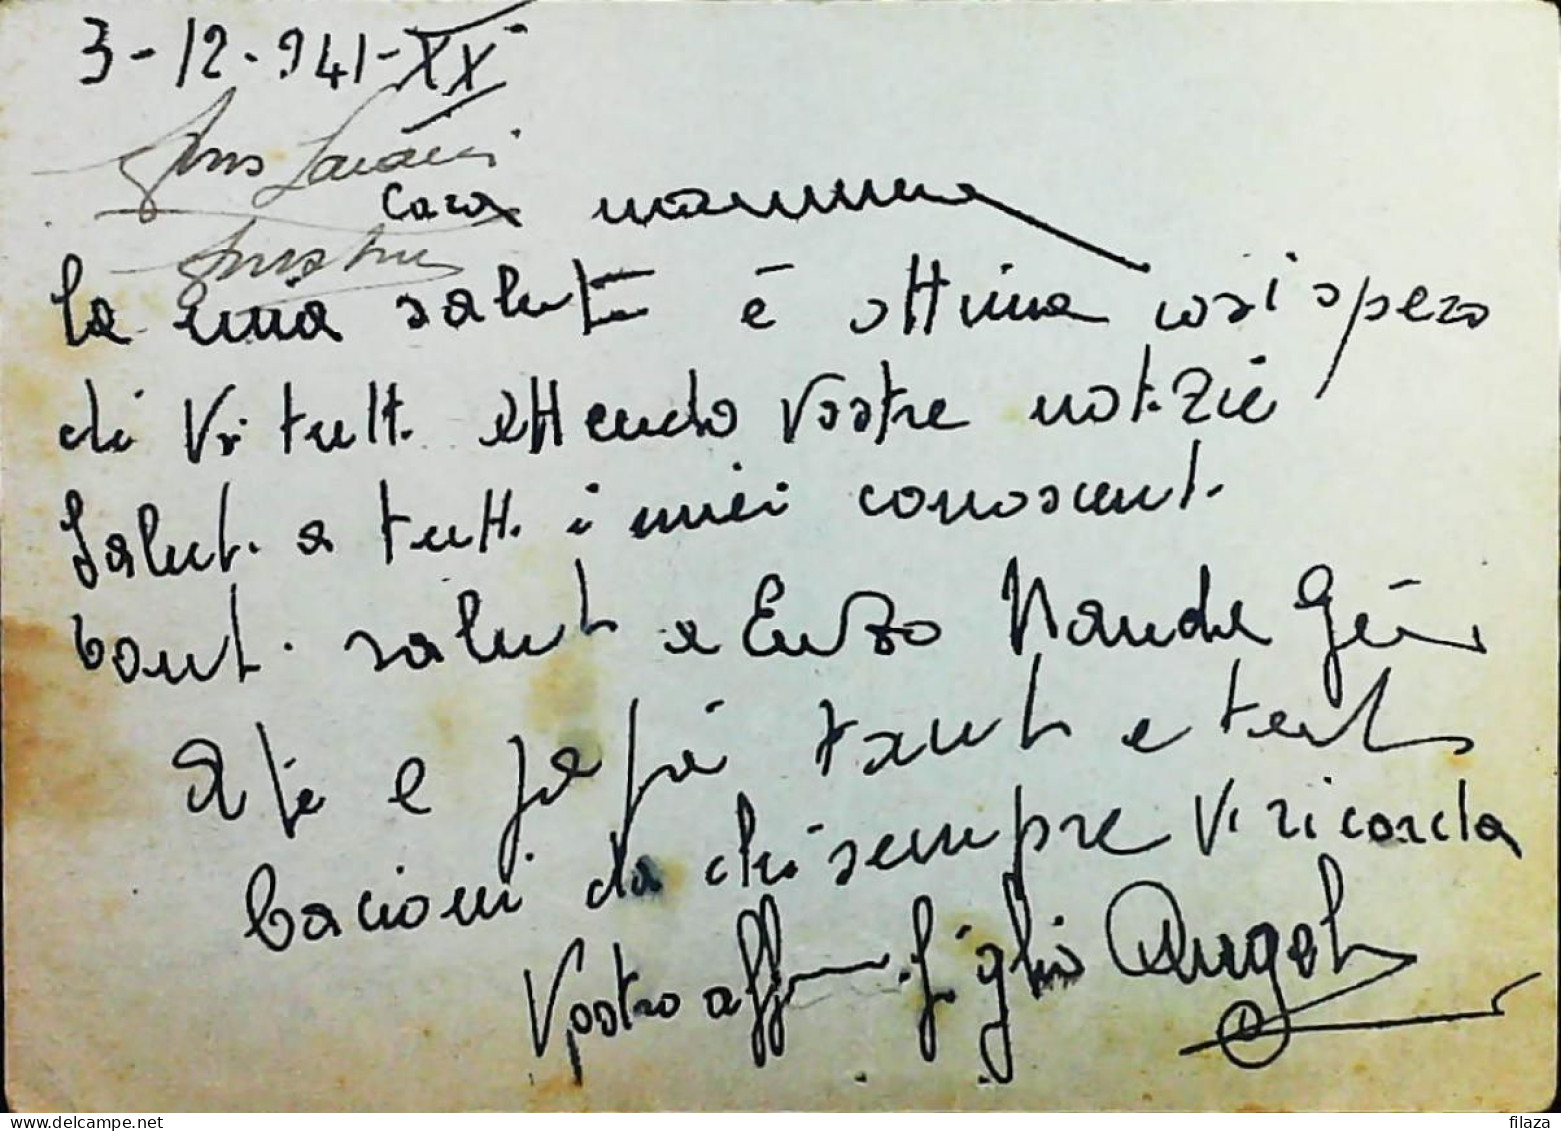 3-12-941-XX°
Cara mamma
la mia salute è ottima così spero
di Voi tutti. attendo Vostre notizie
Saluti a tutti i miei conoscenti.
tanti saluti a Enzo
A te e papà tanti e tanti
bacioni da chi sempre Vi ricorda
Vostro aff figlio Angelo
filaza